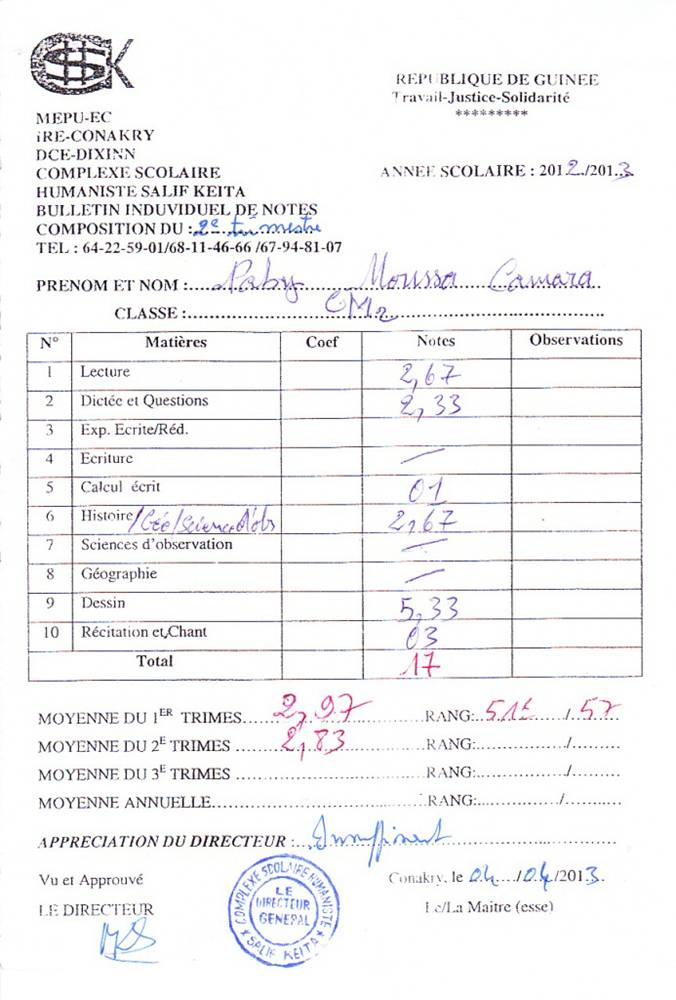 HSK
REPUBLIQUE DE GUINEE
Travail-Justice-Solidarité
*********
MEPU-EC
IRE-CONAKRY
DCE-DIXINN
COMPLEXE SCOLAIRE
HUMANISTE SALIF KEITA
ANNEE SCOLAIRE : 2012/2013
BULLETIN INDUVIDUEL DE NOTES
COMPOSITION DU : 2e trimestre
TEL : 64-22-59-01/68-11-46-66 /67-94-81-07
PRENOM ET NOM : Paby Moussa Camara
CLASSE : CM2
N° Matières Coef Notes Observations
1 Lecture 2,67
2 Dictée et Questions 2,33
3 Exp. Ecrite/Réd.
4 Ecriture —
5 Calcul écrit 01
6 Histoire/Géo/Science d'obs 2,67
7 Sciences d'observation —
8 Géographie —
9 Dessin 5,33
10 Récitation et Chant 03
Total 17
MOYENNE DU 1ER TRIMES 2,97 RANG: 51e / 57
MOYENNE DU 2E TRIMES 2,83 RANG: /
MOYENNE DU 3E TRIMES RANG: /
MOYENNE ANNUELLE RANG: /
APPRECIATION DU DIRECTEUR : Insuffisant
Vu et Approuvé
Conakry, le 04/04/2013
LE DIRECTEUR
Le/La Maitre (esse)
COMPLEXE SCOLAIRE HUMANISTE
LE
DIRECTEUR
GENERAL
SALIF KEITA